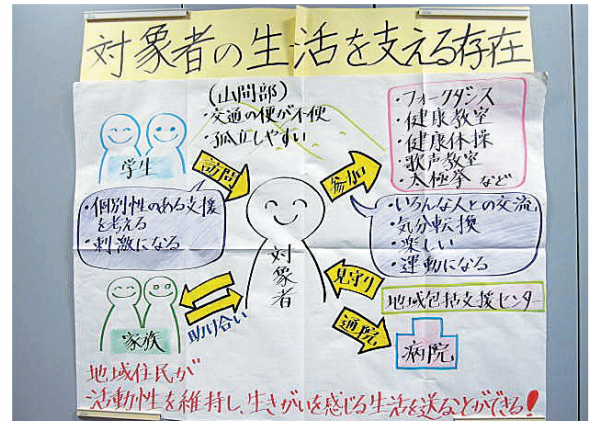 対象者の生活を支える存在
(山間部)
・交通の便が不便
・孤立しやすい
・フォークダンス
・健康教室
・健康体操
・歌声教室
・太極拳 など
学生
訪問
参加
・個別性のある支援
を考える
・刺激になる
・いろんな人との交流
・気分転換
・楽しい
・運動になる
対象者
見守り
地域包括支援センター
家族
助け合い
通院
病院
地域住民が
活動性を維持し、生きがいを感じる生活を送ることができる!